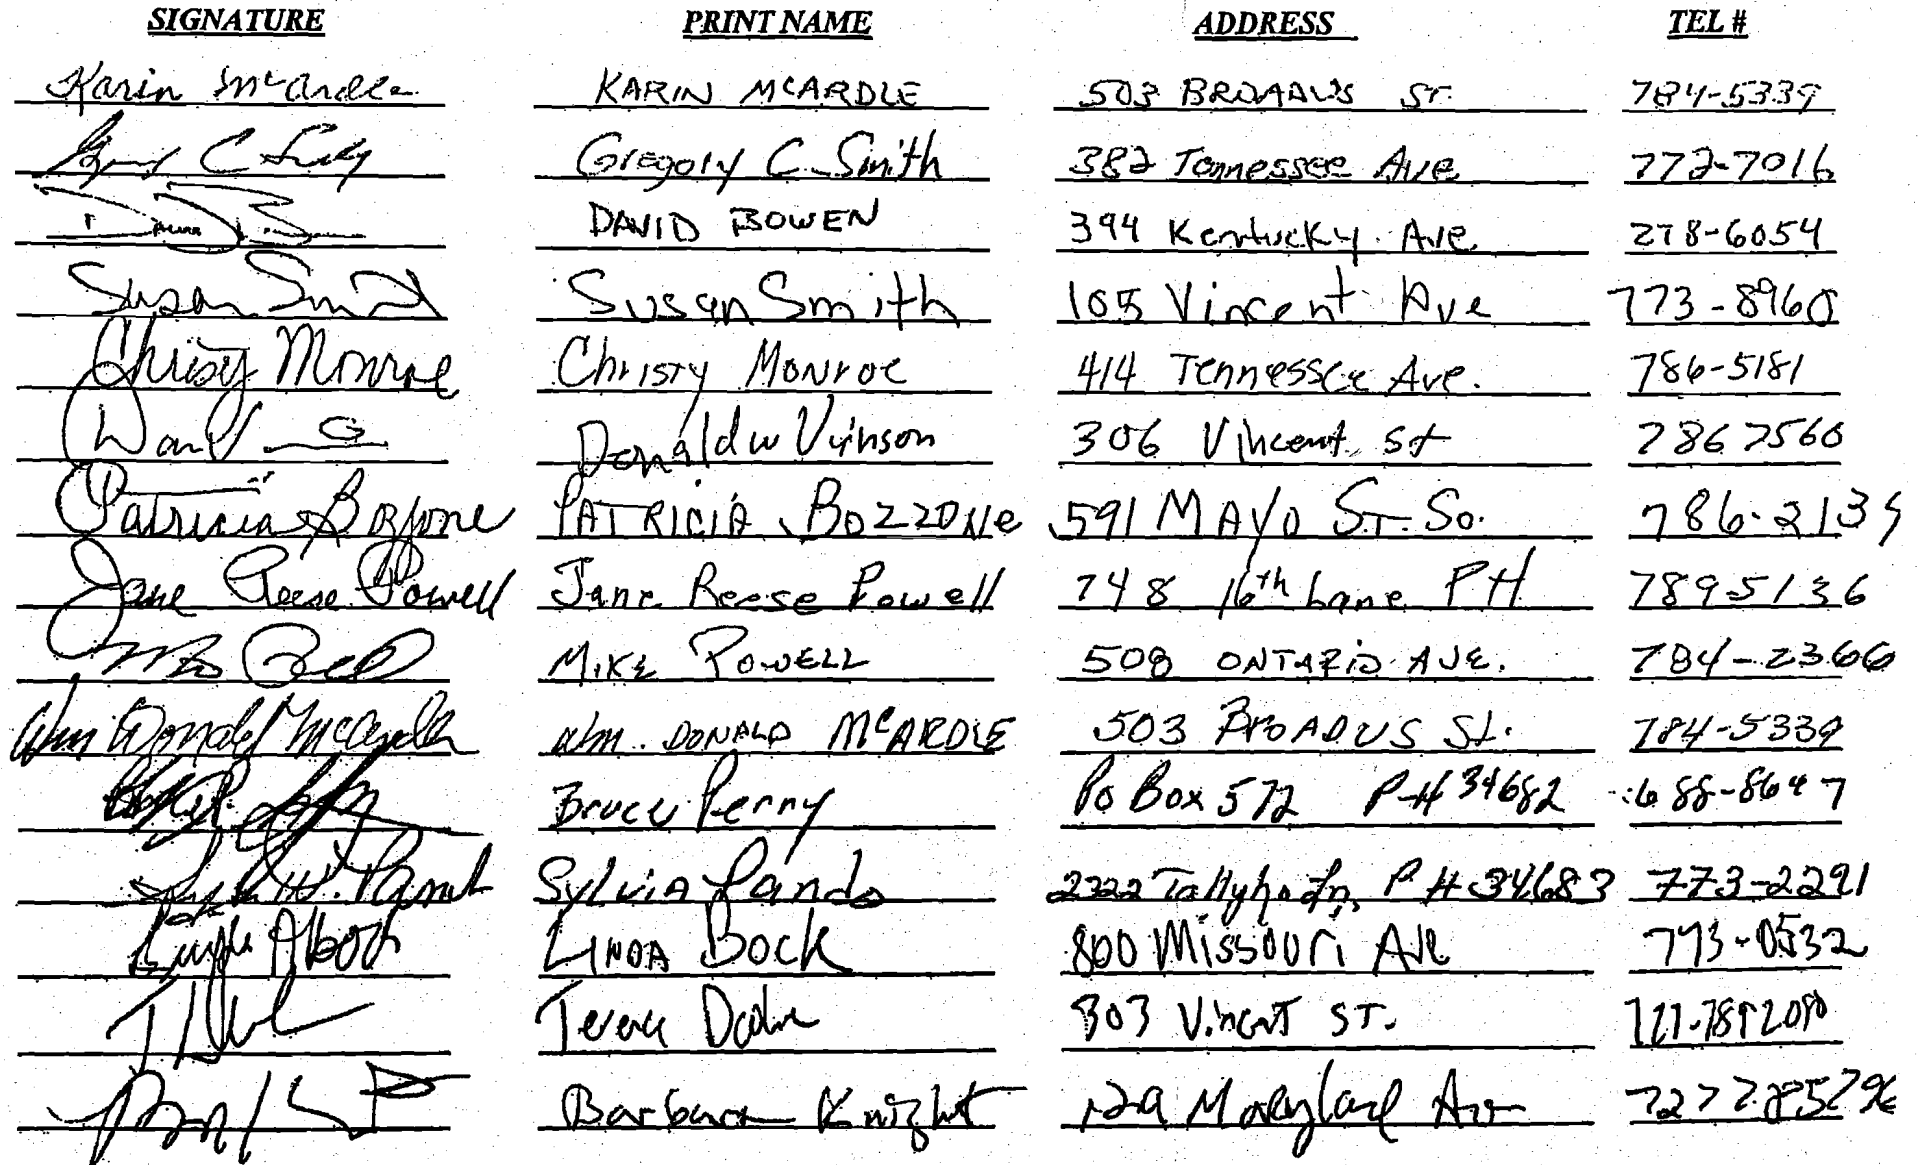 SIGNATURE PRINT NAME ADDRESS TEL #
Karin McArdle KARIN MCARDLE 503 BROADUS ST. 784-5339
Gregory C Smith 382 Tennessee Ave 772-7016
DAVID BOWEN 394 Kentucky Ave 278-6054
Susan Smith Susan Smith 105 Vincent Ave 773-8960
Christy Monroe Christy Monroe 414 Tennessee Ave. 786-5181
Donald W Vinson 306 Vincent St 786 7560
Patricia Bozzone PATRICIA BOZZONE 591 MAYO ST. So. 786-2139
Jane Reese Powell Jane Reese Powell 748 16th Lane PH 789-5136
MIKE POWELL 508 ONTARIO AVE. 784-2366
Wm Donald McArdle Wm. DONALD MCARDLE 503 BROADUS St. 784-5339
Bruce Perry Po Box 572 P-H 34682
Sylvia Pando 2322 Tallyho Ln, P H 34683 773-2291
LINDA BOCK 800 Missouri Ave 773-0532
303 Vincent ST.
Barbara Knight Maryland Ave